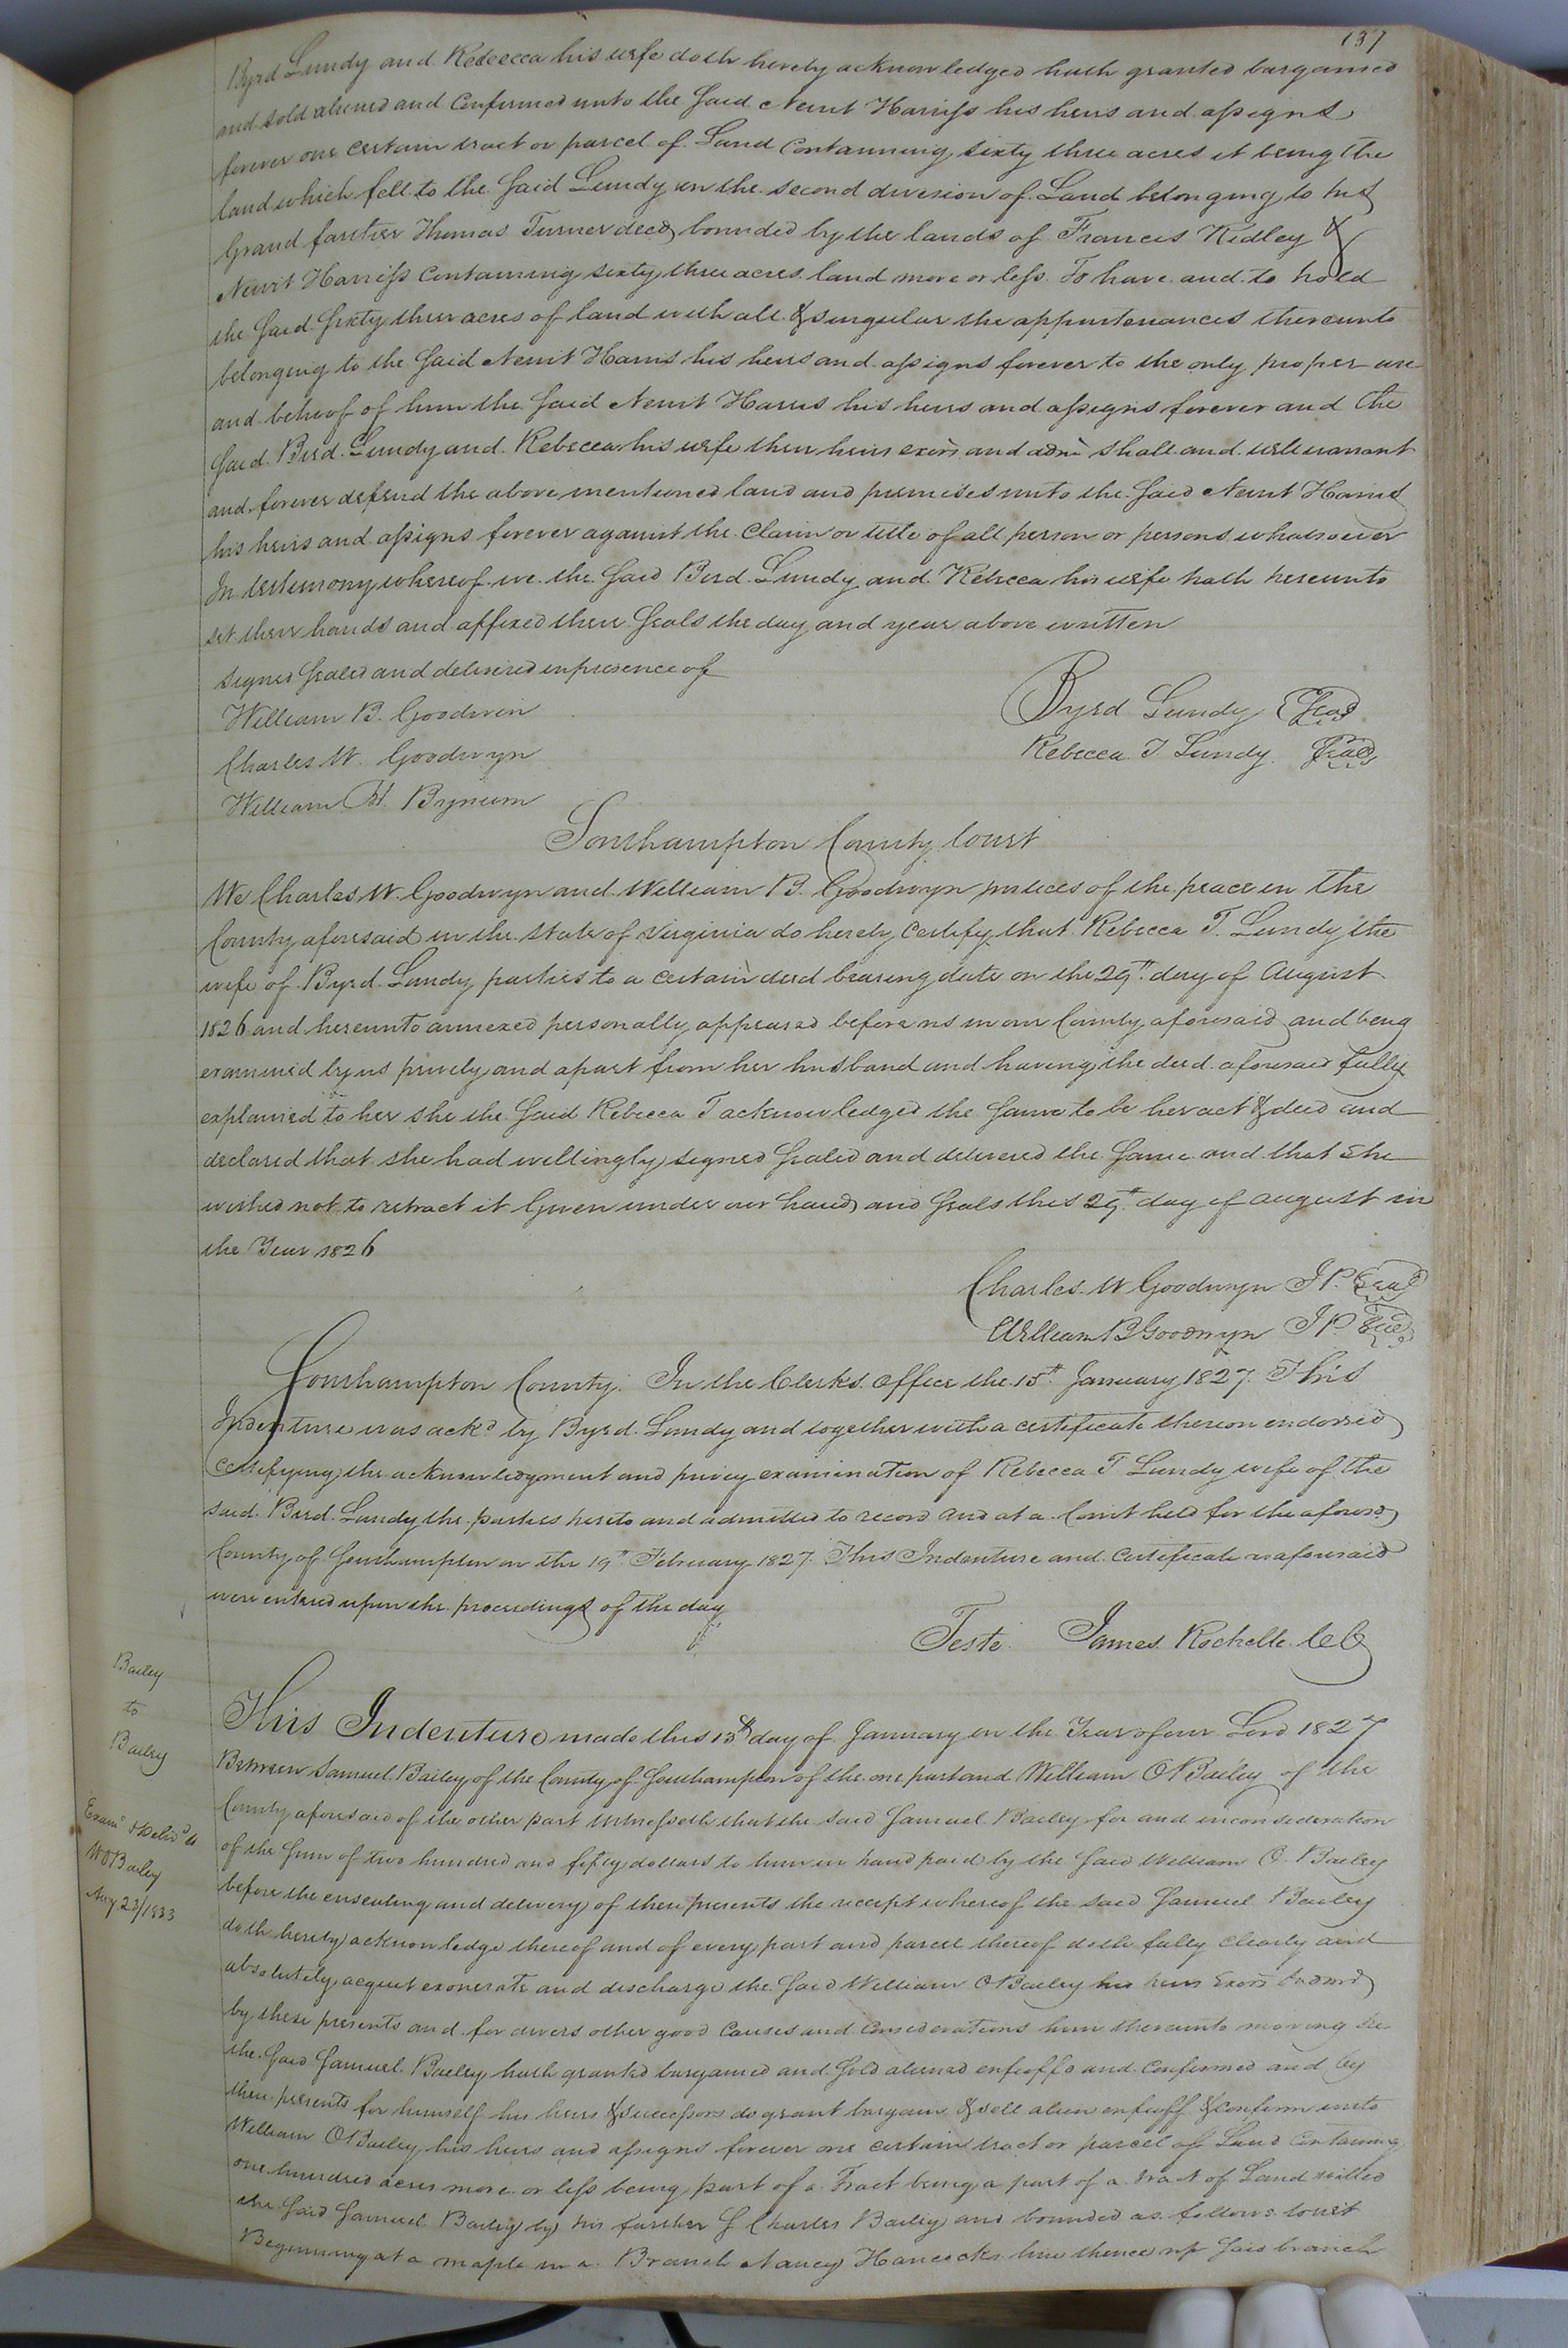 137
Byrd Lundy and Rebecca his wife doth hereby acknowledged hath granted bargained
and sold aliened and Confirmed unto the said Newit Harriss his heirs and assigns
forever one certain tract or parcel of Land Containing sixty three acres it being the
land which fell to the said Lundy in the second division of Land belonging to his
Grand farther Thomas Turner decd bounded by the lands of Frances Ridley &
Newit Harriss Containing sixty three acres land more or less To have and to hold
the said sixty three acres of land with all & singular the appurtenances thereunto
belonging to the said Newit Harris his heirs and assigns forever to the only proper use
and behoof of him the said Newit Harris his heirs and assigns forever and the
said Bird Lundy and Rebecca his wife their heirs exors and adms shall and will warrant
and forever defend the above mentioned land and premises unto the said Newit Harris
his heirs and assigns forever against the Claim or title of all person or persons whatsoever
In testimony whereof we the said Bird Lundy and Rebecca his wife hath hereunto
set their hands and affixed there seals the day and year above written
signed sealed and delivered in presence of
William B. Goodwin
Byrd Lundy Seal
Charles W. Goodwyn
Rebecca T. Lundy Seal
William H. Bynum
Southampton County Court
We Charles W. Goodwyn and William B. Goodwyn justices of the peace in the
County aforesaid in the state of Virginia do hereby Certify that Rebecca T. Lundy the
wife of Byrd Lundy parties to a certain deed bearing date on the 29th day of August
1826 and hereunto annexed personally appeared before us in our County aforesaid and being
examined by us privily and apart from her husband and having the deed aforesaid fully
explained to her she the said Rebecca T acknowledged the same to be her act & deed and
declared that she had willingly signed sealed and delivered the same and that she
wished not to retract it Given under our hand and seals this 29th day of august in
the Year 1826
Charles W Goodwyn J P. Seal
William B Goodwyn J P Seal
Southampton County. In the Clerks office the 15th January 1827. This
Indenture was ackd by Byrd Lundy and together with a certificate thereon endorsed
Certifying the acknowledgment and privy examination of Rebecca T Lundy wife of the
said Bird Lundy the parties hereto and admitted to record and at a Court held for the aforesd
County of Southampton on the 19th February 1827. This Indenture and Certificate as aforesaid
were entered upon the proceedings of the day
Teste James Rochelle C C
Bailey
to
Bailey
Examd & Delivd to
W O Bailey
Aug 23/1833
This Indenture made this 13th day of January in the Year of our Lord 1827
Between Samuel Bailey of the County of Southampton of the one part and William O Bailey of the
County aforesaid of the other part Witnesseth that the said Samuel Bailey for and in consideration
of the sum of two hundred and fifty dollars to him in hand paid by the said William O. Bailey
before the ensealing and delivery of these presents the receipt whereof the said Samuel Bailey
doth hereby acknowledge thereof and of every part and parcel thereof doth fully clearly and
absolutely acquit exonerate and discharge the said William O Bailey his heirs Exors & admrs
by these presents and for divers other good Causes and Considerations him thereunto moving he
the said Samuel Bailey hath granted bargained and sold aliened enfeoffd and Confirmed and by
these presents for himself his heirs & successors do grant bargain & sell alien enfeoff & confirm unto
William O Bailey his heirs and assigns forever one certain tract or parcel of Land Containing
one hundred acres more or less being part of a Tract being a part of a tract of Land willed
the said Samuel Bailey by his farther S Charles Bailey and bounded as follows towit
Beginning at a maple in a Branch Nancy Hancocks line thence up said branch